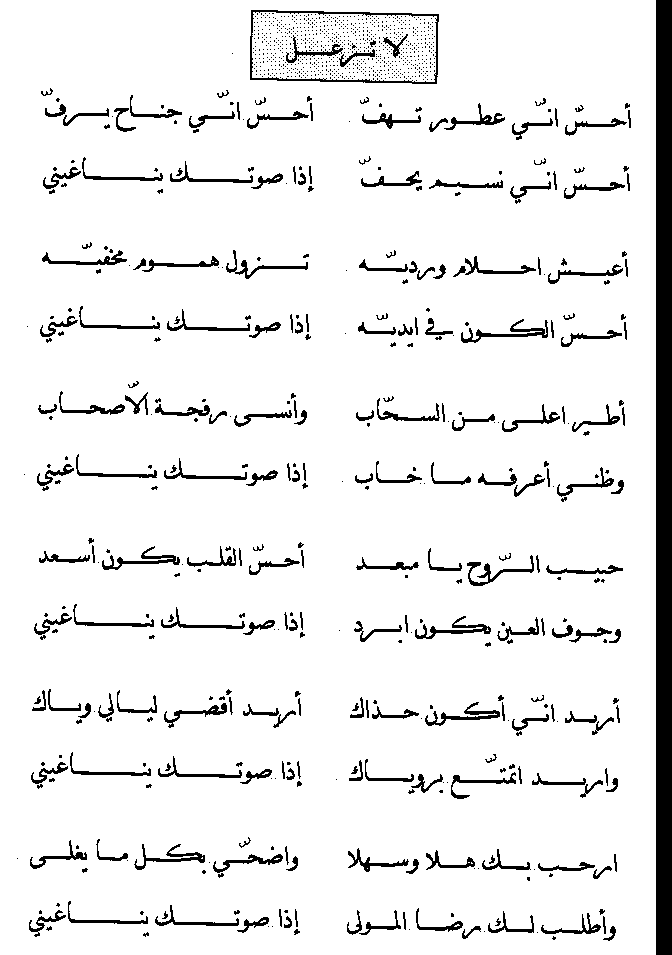 لا تزعل
أحسّ انّي عطور تهفّ أحسّ انّي جناح يرفّ
أحسّ انّي نسيم يحفّ إذا صوتك يناغيني
أعيش احلام ورديّه تزول هموم مخفيّه
أحسّ الكون في ايديّه إذا صوتك يناغيني
أطير اعلى من السحّاب وأنسى رفجة الأصحاب
وظني أعرفه ما خاب إذا صوتك يناغيني
حبيب الرّوح يا مبعد أحسّ القلب يكون أسعد
وجوف العين يكون ابرد إذا صوتك يناغيني
أريد انّي أكون حذاك أريد أقضي ليالي وياك
واريد اتمتّع بروياك إذا صوتك يناغيني
ارحب بك هلا وسهلا واضحّي بكل ما يغلى
وأطلب لك رضا المولى إذا صوتك يناغيني